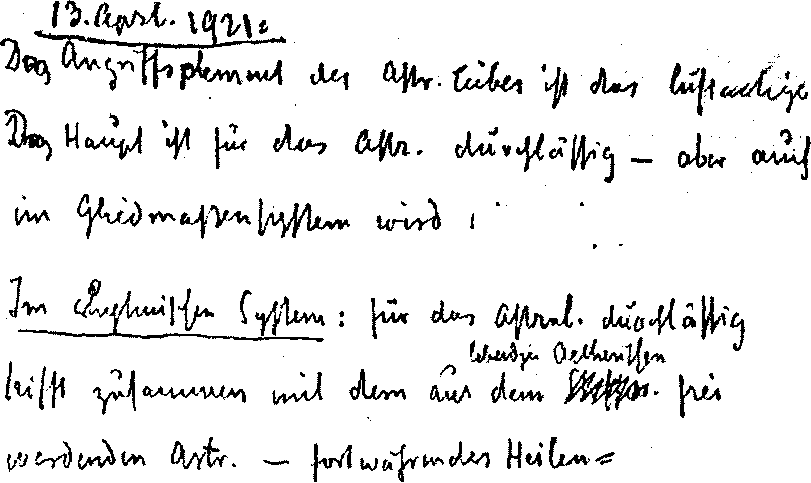 13. April. 1921=
Das Angriffselement des Astr. Leibes ist das luftartige
Das Haupt ist für das Astr. durchlässig – aber auch
im Gliedmaßensystem wird
Im rhythmischen System: für das Astral. durchlässig
lebendigen Aetherischen
trifft zusammen mit dem aus dem frei
werdenden Astr. – fortwährendes Heilen=